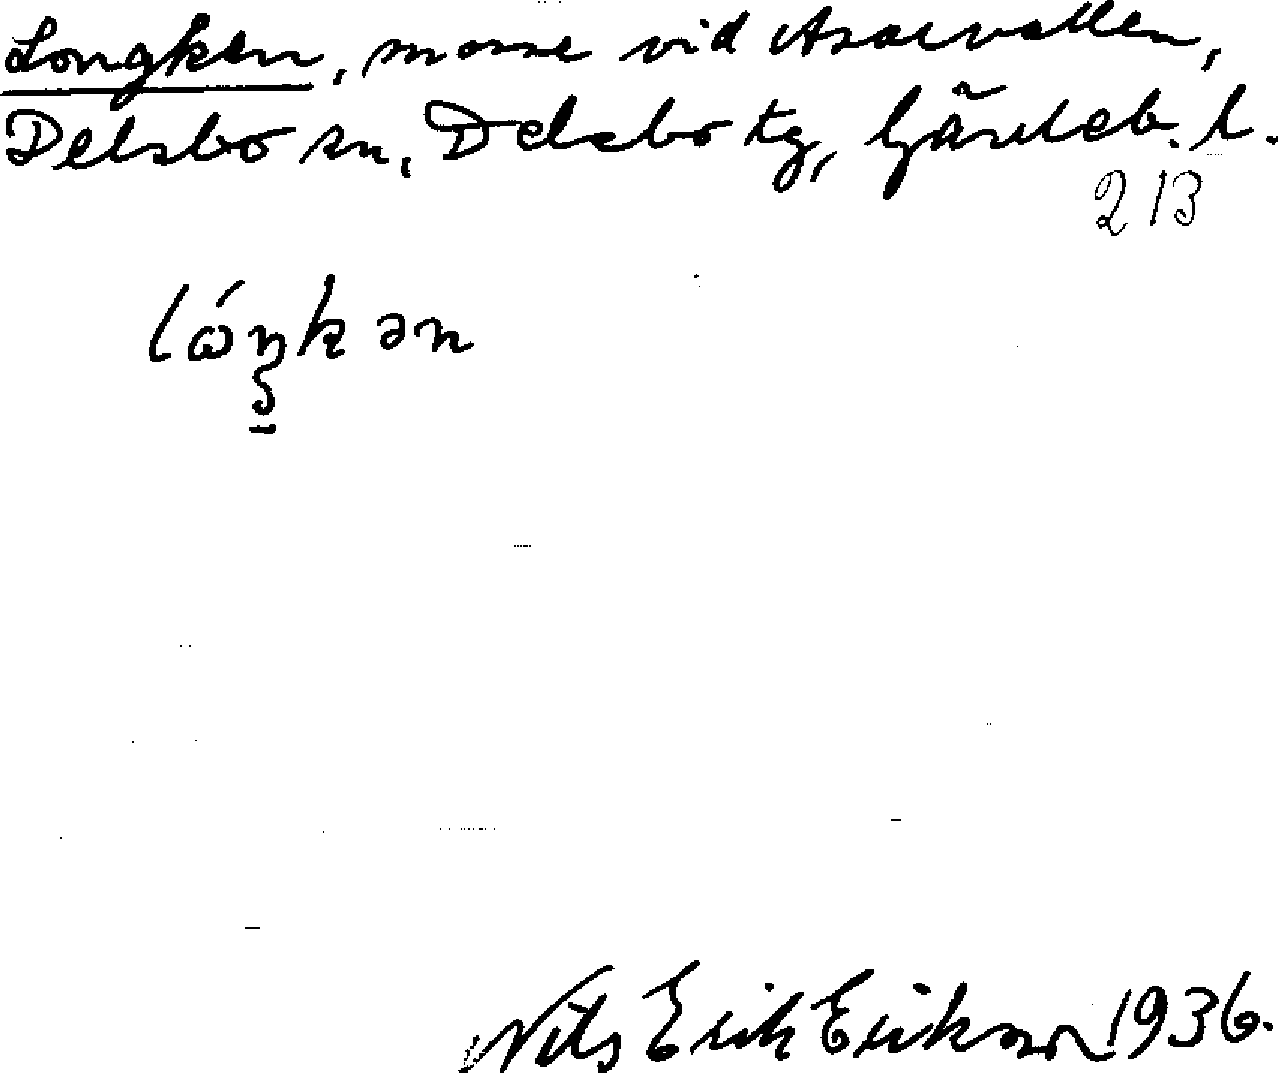 Longken, mosse vid Asarvallen,
Delsbo sn, Delsbo tg, Gävleb. l.
213
lóŋkən
Nils Erik Erikson 1936.